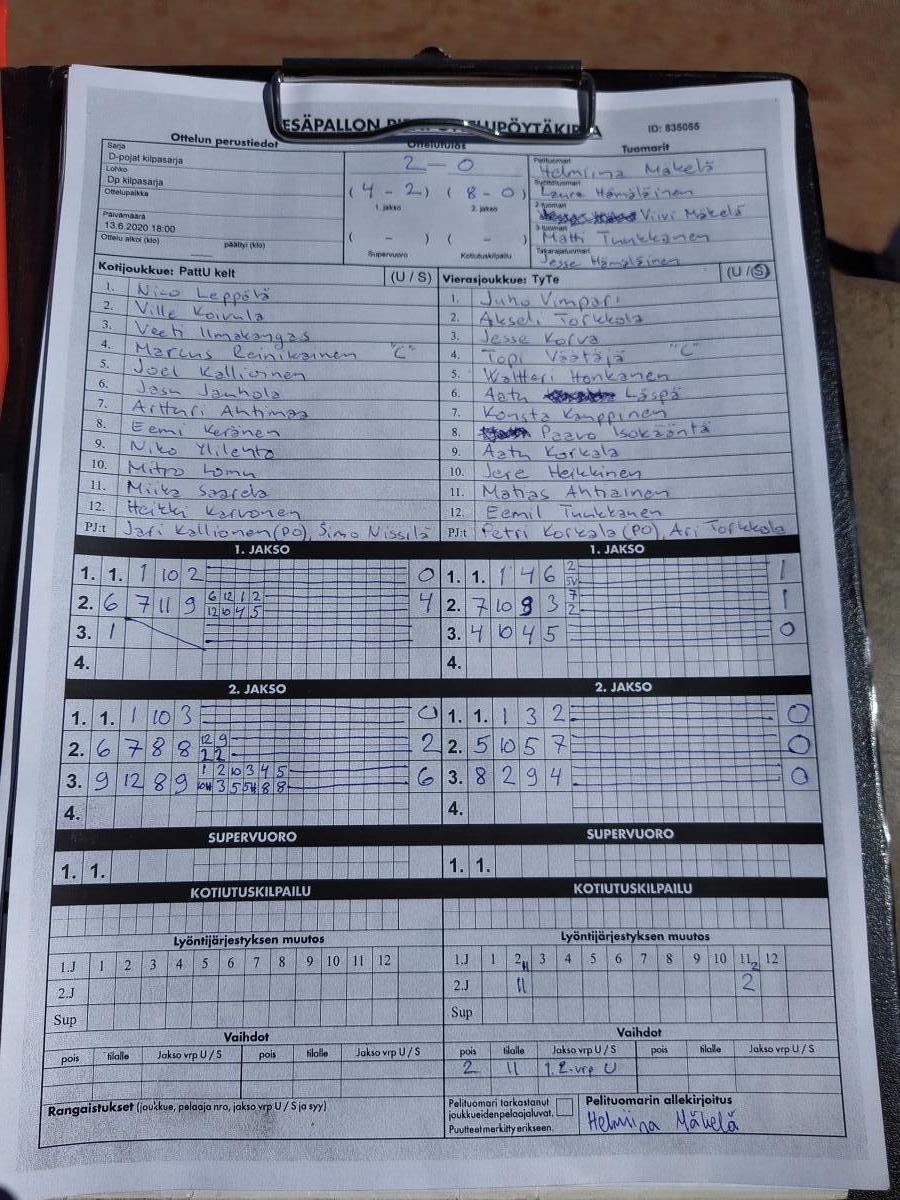 ID: 835055
Ottelun perustiedot
Ottelutulos
Tuomarit
Sarja
D-pojat kilpasarja
Lohko
Dp kilpasarja
Ottelupaikka
Päivämäärä
13.6.2020 18:00
Ottelu alkoi (klo) päättyi (klo)
2 - 0
(4 - 2) (8 - 0)
1. jakso 2. jakso
( - ) ( - )
Supervuoro Kotiutuskilpailu
Pelituomari
Helmiina Mäkelä
Syöttötuomari
Laura Hämäläinen
2-tuomari
Viivi Mäkelä
3-tuomari
Matti Tuukkanen
Takarajatuomari
Jesse Hämäläinen
Kotijoukkue: PattU kelt (U / S)
1. Nico Leppälä
2. Ville Koivula
3. Veeti Ilmakangas
4. Marcus Reinikainen "C"
5. Joel Kallioinen
6. Jasu Janhola
7. Artturi Ahtimaa
8. Eemi Keränen
9. Niko Ylilehto
10. Mitro
11. Miika Saarela
12. Heikki Karvonen
PJ:t Jari Kallionen (PO), Simo Nissilä
Vierasjoukkue: TyTe (U / S)
1. Juho Vimpari
2. Akseli Torkkola
3. Jesse Korva
4. Topi Väätäjä "C"
5. Waltteri Honkanen
6. Aatu Läspä
7. Konsta Kauppinen
8. Paavo Isokääntä
9. Aatu Korkala
10. Jere Heikkinen
11. Matias Ahtiainen
12. Eemil Tuukkanen
PJ:t Petri Korkala (PO), Ari Torkkola
1. JAKSO
1. 1. 1 10 2 0
2. 6 7 11 9 6 12 1 2 4
12 10 4 5
3. 1
4.
1. JAKSO
1. 1. 1 4 6 2 1
5V
2. 7 10 8 3 7 1
2
3. 4 10 4 5 0
4.
2. JAKSO
1. 1. 1 10 3 0
2. 6 7 8 8 12 9 2
2 2
3. 9 12 8 9 1 2 10 3 4 5 6
3 5 8 8
4.
2. JAKSO
1. 1. 1 3 2 0
2. 5 10 5 7 0
3. 8 2 9 4 0
4.
SUPERVUORO
1. 1.
SUPERVUORO
1. 1.
KOTIUTUSKILPAILU
KOTIUTUSKILPAILU
Lyöntijärjestyksen muutos
1.J 1 2 3 4 5 6 7 8 9 10 11 12
2.J
Sup
Lyöntijärjestyksen muutos
1.J 1 2 11 3 4 5 6 7 8 9 10 11 2 12
2.J 11 2
Sup
Vaihdot
pois tilalle Jakso vrp U / S pois tilalle Jakso vrp U / S
Vaihdot
pois tilalle Jakso vrp U / S pois tilalle Jakso vrp U / S
2 11 1. 2.vrp U
Rangaistukset (joukkue, pelaaja nro, jakso vrp U / S ja syy)
Pelituomari tarkastanut
joukkueiden pelaajaluvat.
Puutteet merkitty erikseen.
Pelituomarin allekirjoitus
Helmiina Mäkelä